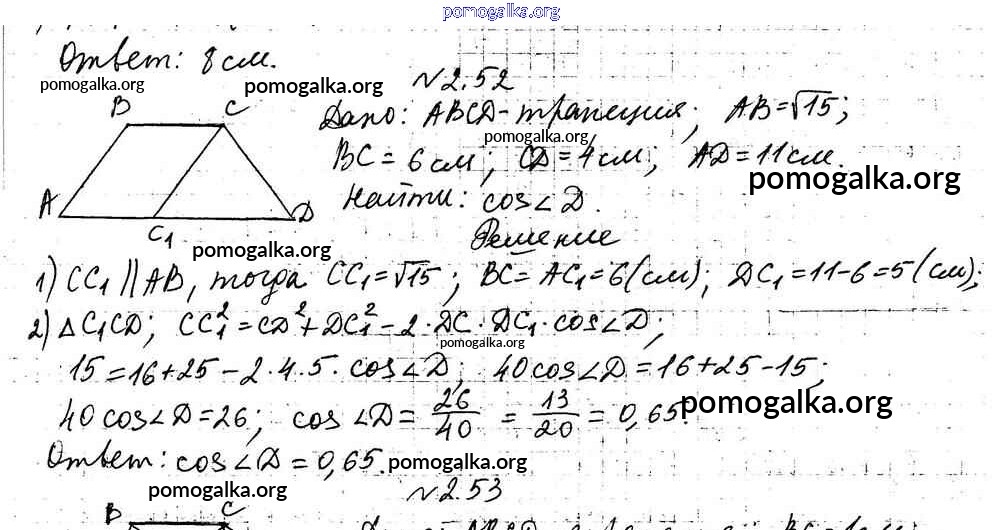 pomogalka.org
Ответ: 8 см.
pomogalka.org
pomogalka.org
№2.52
B C
A C₁ D
Дано: ABCD-трапеция; AB=√15;
pomogalka.org
BC=6см; CD=4см; AD=11см.
pomogalka.org
Найти: cos∠D.
pomogalka.org
Решение
1) CC₁∥AB, тогда CC₁=√15; BC=AC₁=6(см); DC₁=11-6=5(см);
2) △C₁CD; CC₁²=CD²+DC₁²-2·DC·DC₁·cos∠D;
pomogalka.org
15=16+25-2·4·5·cos∠D; 40cos∠D=16+25-15;
40cos∠D=26; cos∠D=26/40=13/20=0,65.
pomogalka.org
Ответ: cos∠D=0,65.
pomogalka.org
pomogalka.org
№2.53
B C